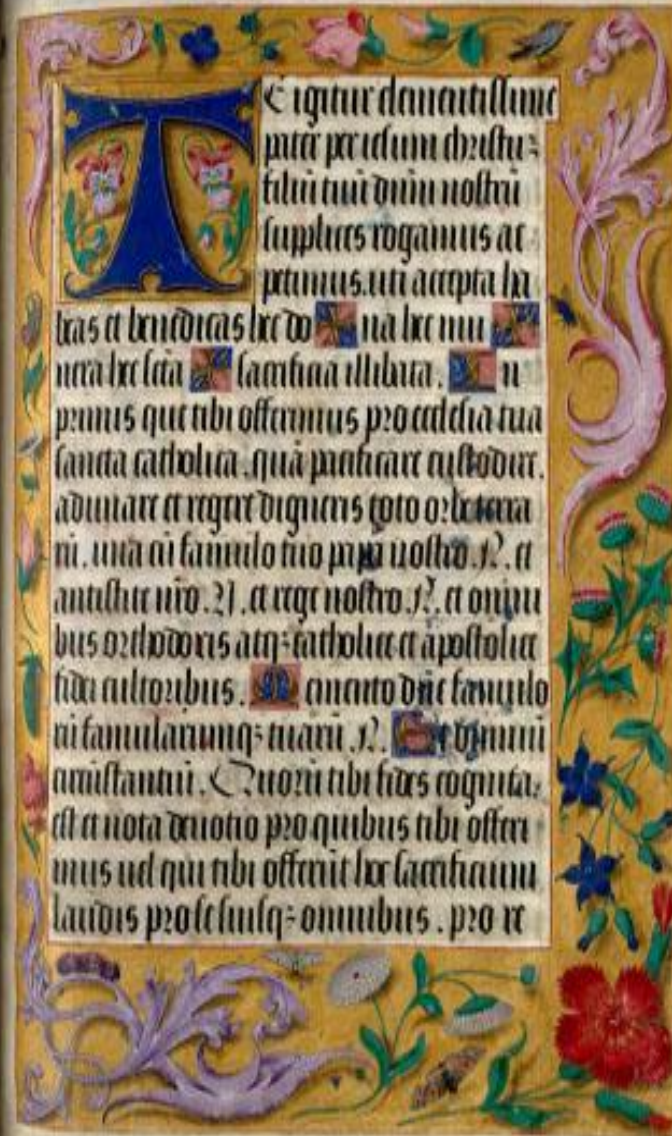 TE igitur clementissime
pater per iesum christū
filiū tuū dn̄m nostrū
supplices rogamus ac
petimus. uti accepta ha
beas et benedicas hec do ✠ na hec mu ✠
nera hec sc̄ta ✠ sacrificia illibata. In
primis que tibi offerimus pro ecclesia tua
sancta catholica. quā pacificare custodire.
adunare et regere digneris toto orbe terra
rū. una cū famulo tuo papa nostro .N. et
antistite nr̄o .N. et rege nostro .N. et omni
bus orthodoxis atq; catholice et apostolice
fidei cultoribus. Memento dn̄e famulo
rū famularumq; tuarū .N. Et omniū
circūstantiū. Quorū tibi fides cognita
est et nota deuotio pro quibus tibi offeri
mus uel qui tibi offerūt hoc sacrificium
laudis pro se suisq; omnibus. pro re